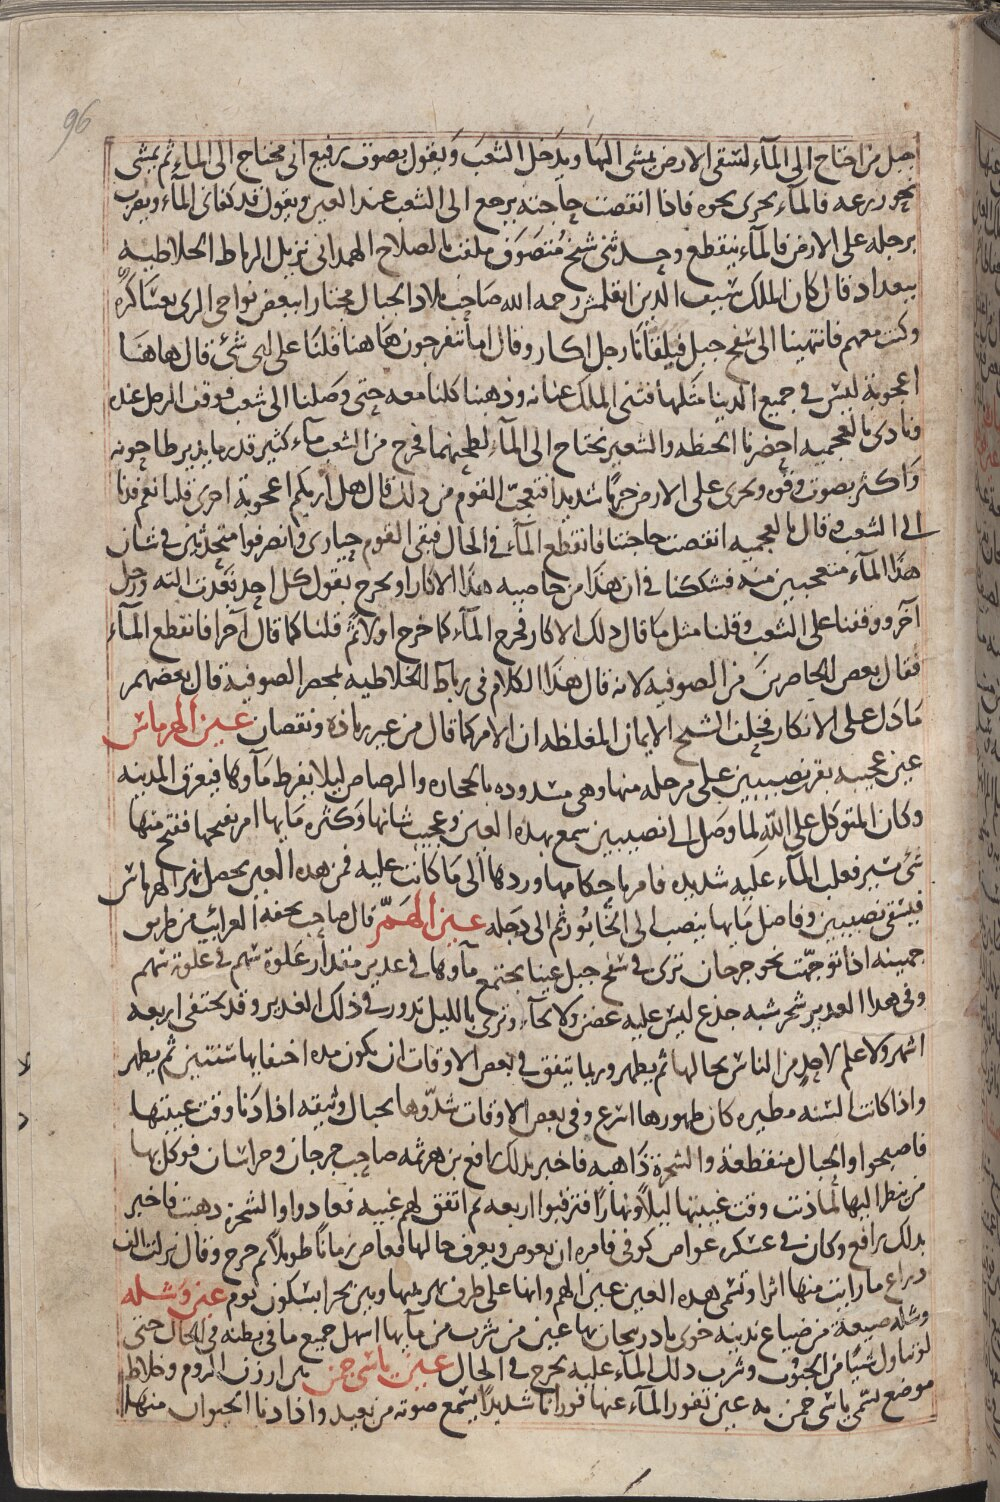 96
جبل من احتاج الى المآء لسقى الارض يمشى اليها ويدخل الشعب ويقول بصوت رفيع انى محتاج الى المآء ثم يمشى
نحو زرعه فالمآء يجرى نحوه فاذا انقضت حاجته يرجع الى الشعب عند العين ويقول قد كفانى المآء ويضرب
برجله على الارض فالمآء ينقطع وحدثنى شيخ متصوف ملقب بالصلاح الهمدانى نزيل الرباط الخلاطيه
ببغداد قال كان الملك سيف الدين ايغلمش رحمه الله صاحب بلاد الجبال مجتازا ببعض نواحى الرى بعساكره
وكنت معهم فانتهينا الى سفح جبل فيلقانا رجل اكار وقال اما تتفرجون هاهنا قلنا على اى شئ قال هاهنا
اعجوبة ليس فى جميع الدنيا مثلها فثنى الملك عنانه وذهبنا كلنا معه حتى وصلنا الى شعب فوقف الرجل عنده
ونادى بالعجميه احضرنا الحنطه والشعير نحتاج الى المآء لطحنهما فخرج من الشعب مآء كثير قدر ما يدير طاحونه
واكثر بصوت وقوه وجرى على الارض جريا شديدا فتعجب القوم من ذلك قال هل اريكم اعجوبة اخرى قلنا نعم فدنا
الى الشعب وقال بالعجميه انقضت حاجتنا فانقطع المآء فى الحال فبقى القوم حيارى وانصرفوا متحدثين فى شان
هذا المآء متعجبين منه فشككنا فى ان هذا من خاصيه هذا الاكار او يخرج بقول كل احد فعدت اليه ورجل
آخر ووقفنا على الشعب وقلنا مثل ما قال ذلك الاكار فخرج المآء كما خرج اولا ثم قلنا كما قال آخرا فانقطع المآء
فقال بعض الحاضرين من الصوفيه لانه قال هذا الكلام فى رباط الخلاطيه بمحضر الصوفيه قال بعضهم
ما دل على الانكار فحلف الشيخ الايمان المغلظه ان الامر كما قال من غير زياده ونقصان عين الهرماس
عين عجيبه بقرب نصيبين على مرحله منها وهى مسدوده بالحجاره والرصاص ليلا يفرط مآوها فيغرق المدينه
وكان المتوكل على الله لما وصل الى نصيبين سمع بهذه العين وعجيب شانها وكثره مايها امر بفتحها ففتح منها
شئ يسير فغلب المآء عليه شديده فامر باحكامها وردها الى ما كانت عليه فمن هذه العين يحصل نهر الهرماس
فيسقى نصيبين وفاضل مايها ينصب الى الخابور ثم الى دجله عين الهم قال صاحب تحفه الغرائب من طريق
جمينه اذا توجهت نحو جرجان ترى فى سفح جبل عينا يجتمع مآوها فى غدير مقدار غلوة سهم فى غلوة سهم
وفى هذا الغدير شجر شبه جذع ليس عليه غصن ولا لحآء وترى بالليل تدور فى ذلك الغدير وقد تختفى اربعه
اشهر ولا علم لاحد من الناس بحالها ثم يظهر وربما يتفق فى بعض الاوقات ان يكون مده اختفايها سنتين ثم يظهر
واذا كانت السنه مطيره كان ظهورها اسرع وفى بعض الاوقات شدوها بحبال وثيقه اذا دنا وقت غيبتها
فاصبحوا والحبال منقطعة والشجرة ذاهبه فاخبر بذلك رافع بن هرثمه صاحب جرجان وخراسان فوكل بها
من ينظر اليها لما دنت وقت غيبتها ليلا ونهارا فترقبوا اربعه ثم اتفق لهم غيبه فعادوا والشجرة ذهبت فاخبر
بذلك رافع وكان فى عسكره غواص كوفى فامره ان يغوص ويعرف حالها فغاص زمانا طويلا ثم خرج وقال نزلت الف
ذراع ما رايت منها اثرا وتسمى هذه العين عين الهم وانها على طرف نهر بينها وبين بحر ابسكون يوم عين وشله
وشله ضيعة من ضياع مدينه خوى باذربيجان بها عين من شرب من مآيها اسهل جميع ما فى بطنه فى الحال حتى
لو تناول شيا من الحبوب وشرب ذلك المآء عليه يخرج فى الحال عين ياسى جمن بين ارزن الروم وخلاط
موضع تسمى ياسى جمن به عين تفور المآء عنها فورانا شديدا يسمع صوته من بعيد واذا دنا الحيوان منها